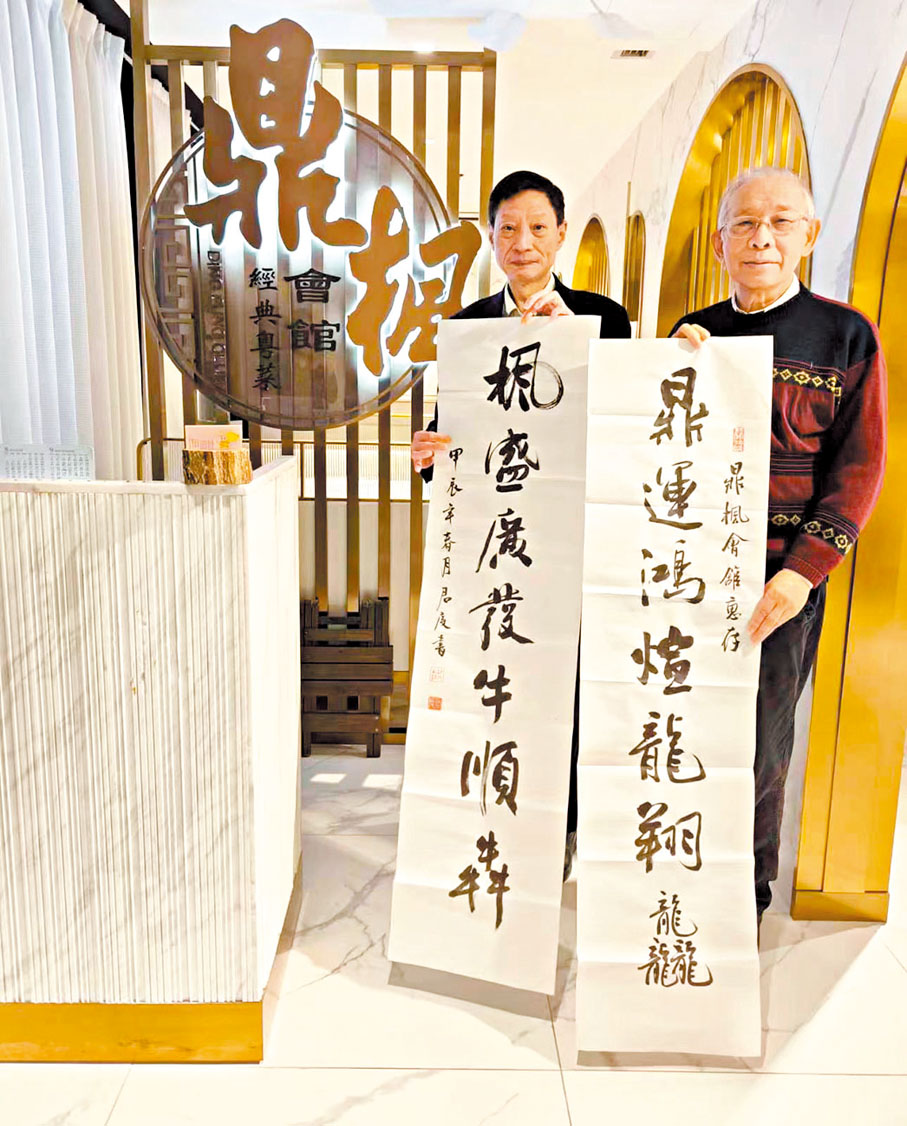 鼎楓
會館
經典粵菜
鼎楓會館惠存
鼎運鴻煊龍翔龘
楓盛廣發牛順犇
甲辰年春月君度書